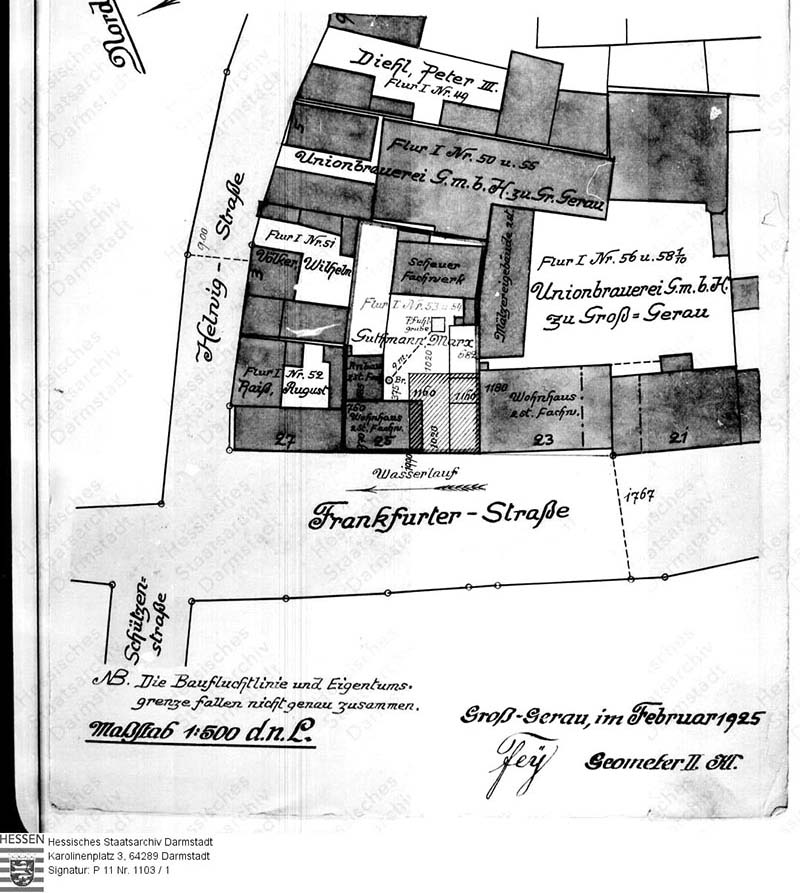 Nord
9
Diehl, Peter III.
Flur I Nr. 49
5
Flur I Nr. 50 u. 55
Unionbrauerei G.m.b.H. zu Gr. Gerau
Helwig-Straße
9,00
Flur I Nr. 51
3 Völker, Wilhelm
Scheuer
Fachwerk
Flur I Nr. 56 u. 58 1/10
Unionbrauerei G.m.b.H.
zu Groß=Gerau
Flur I Nr. 53 u. 54
Pfuhl-
grube
Guthmann, Marx
Flur I Nr. 52
Raiß, August
Anbau
Br.
375
1020
1160
1160
1180
Wohnhaus
2 st. Fachw.
25
1020
27
Wohnhaus
2 st. Fachw.
23
21
Wasserlauf
Frankfurter-Straße
1767
Schützen-
straße
NB. Die Baufluchtlinie und Eigentums-
grenze fallen nicht genau zusammen.
Maßstab 1:500 d.n.L.
Groß-Gerau, im Februar 1925
Fey Geometer II. Kl.
HESSEN
Hessisches Staatsarchiv Darmstadt
Karolinenplatz 3, 64289 Darmstadt
Signatur: P 11 Nr. 1103 / 1
Hessisches
Staatsarchiv
Darmstadt